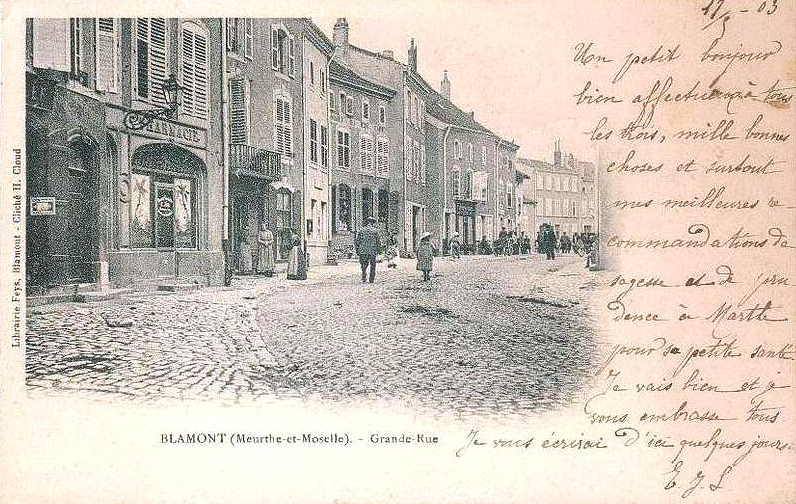 PHARMACIE
Librairie Feys, Blamont - Cliché H. Cloud
BLAMONT (Meurthe-et-Moselle). - Grande-Rue
03
Un petit bonjour
bien affectueux à tous
les trois, mille bonnes
choses et surtout
mes meilleures re-
commandations de
sagesse et de pru
dence à Marthe
pour sa petite santé.
Je vais bien et je
vous embrasse tous
Je vous écrirai d'ici quelques jours.